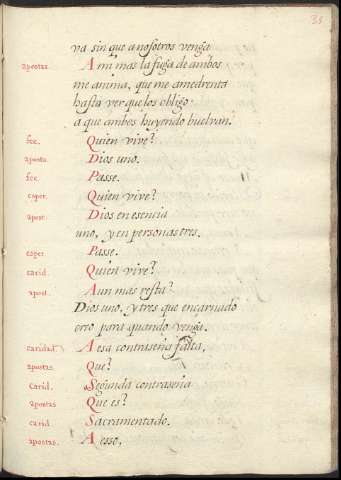 35
va sin que a nosotros venga
apostas. A mi mas la fuga de ambos
me anima, que me amedrenta
hasta ver que los obligo
a que ambos huyendo buelvan.
fee. Quien vive?
aposta. Dios uno.
fee. Passe.
esper. Quien vive?
apost. Dios en esencia
uno, y en personas tres.
esper. Passe.
carid. Quien vive?
apost. Aun mas resta?
Dios uno, y tres que encarnado
erro para quando venga.
caridad. A esa contraseña falta.
apostas. Que?
Carid. Segunda contraseña
apostas Que es?
carid. Sacramentado.
apostas. A esso.